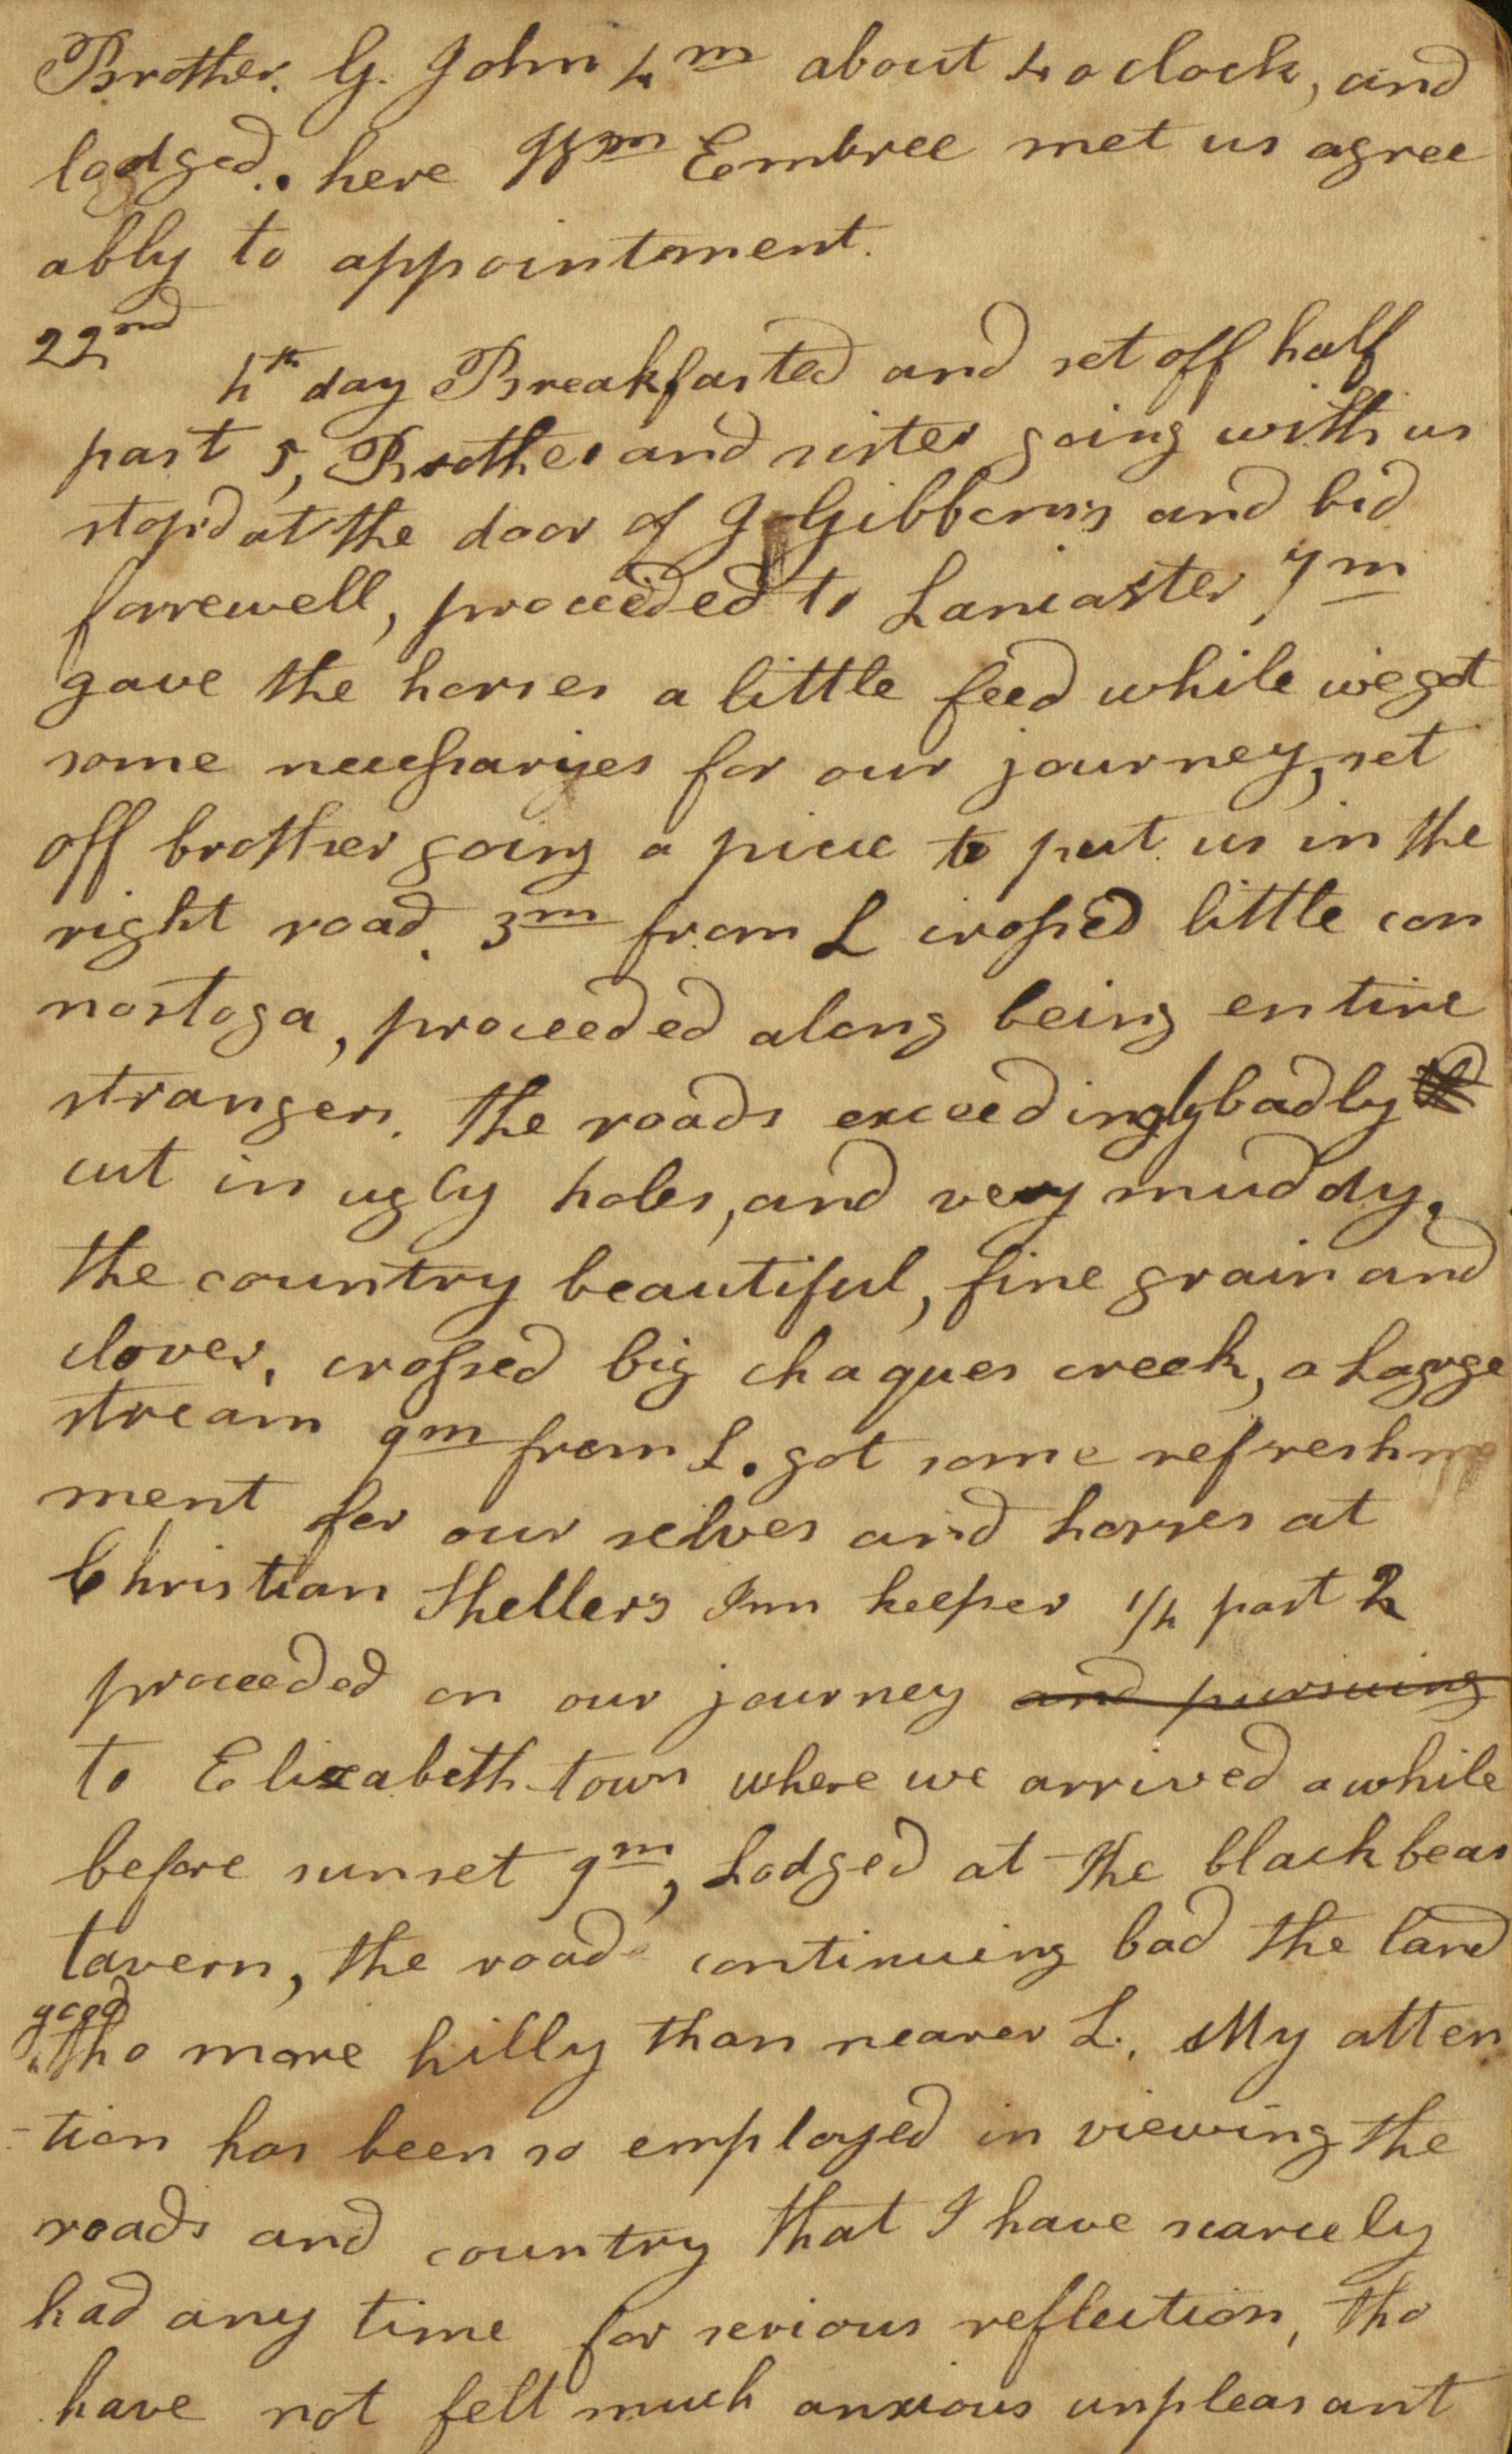 Brother. G. John 4m about 4 o clock, and
lodged. here Wm Embree met us agree
ably to appointment.
22nd
4th day Breakfasted and set off half
past 5, Brother and sister going with us
stop'd at the door of J Gibbons's and bid
farewell, proceeded to Lancaster, 7m
gave the horses a little feed while we got
some necessaryes for our journey, set
off brother going a piece to put us in the
right road. 3m from L crossed little con
nostoga, proceeded along being entire
strangers. the roads exceedingly badly
cut in ugly holes, and very muddy.
the country beautiful, fine grain and
clover, crossed big chaques creek, a Large
stream 9m from L. got some refreshm
ment for our selves and horses at
Christian Shellers Inn keeper 1/2 past 2
proceeded on our journey and pursuing
to Elizabeth-town where we arrived a while
before sunset 9m, Lodged at the black bear
tavern, the road continuing bad the land
good
tho more hilly than nearer L. My atten
-tion has been so employed in viewing the
roads and country that I have scarcely
had any time for serious reflection, tho
have not felt much anxious unpleasant